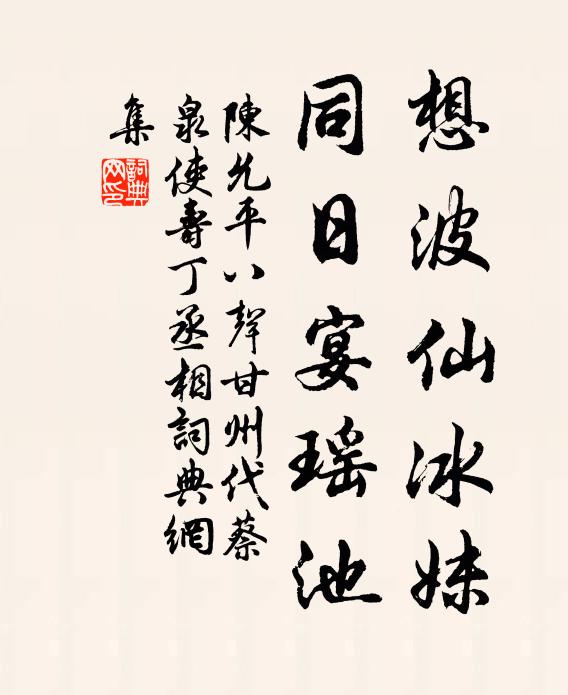 想波仙冰妹
同日宴瑶池
陳允平八聲甘州代蔡
泉使壽丁丞相詞典網
集
詞典網印